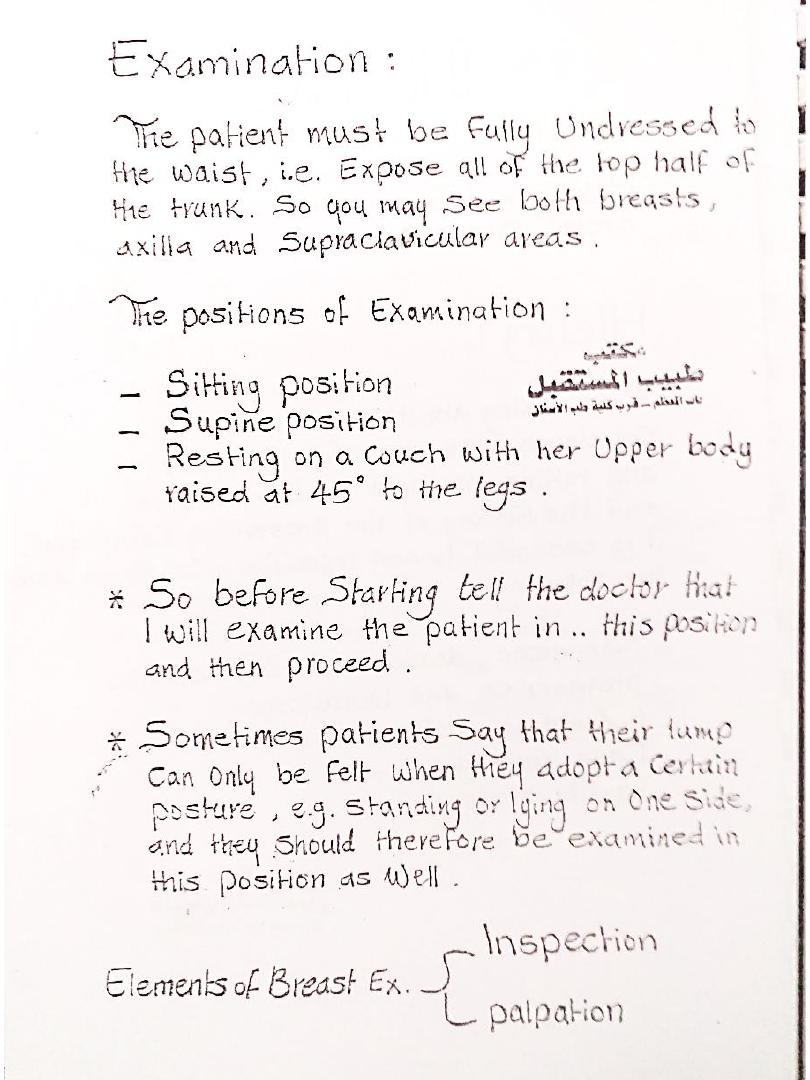 Examination :
The patient must be Fully Undressed to
the waist, i.e. Expose all of the top half of
the trunk. So you may See both breasts,
axilla and Supraclavicular areas.
The positions of Examination :
- Sitting position
مكتب
طبيب المستقبل
باب المعظم - قرب كلية طب الأسنان
- Supine position
- Resting on a Couch with her Upper body
raised at 45° to the legs.
* So before Starting tell the doctor that
I will examine the patient in .. this position
and then proceed.
* Sometimes patients Say that their lump
Can Only be Felt when they adopt a Certain
posture, e.g. standing or lying on One Side,
and they Should therefore be examined in
this position as Well.
Elements of Breast Ex.
Inspection
palpation